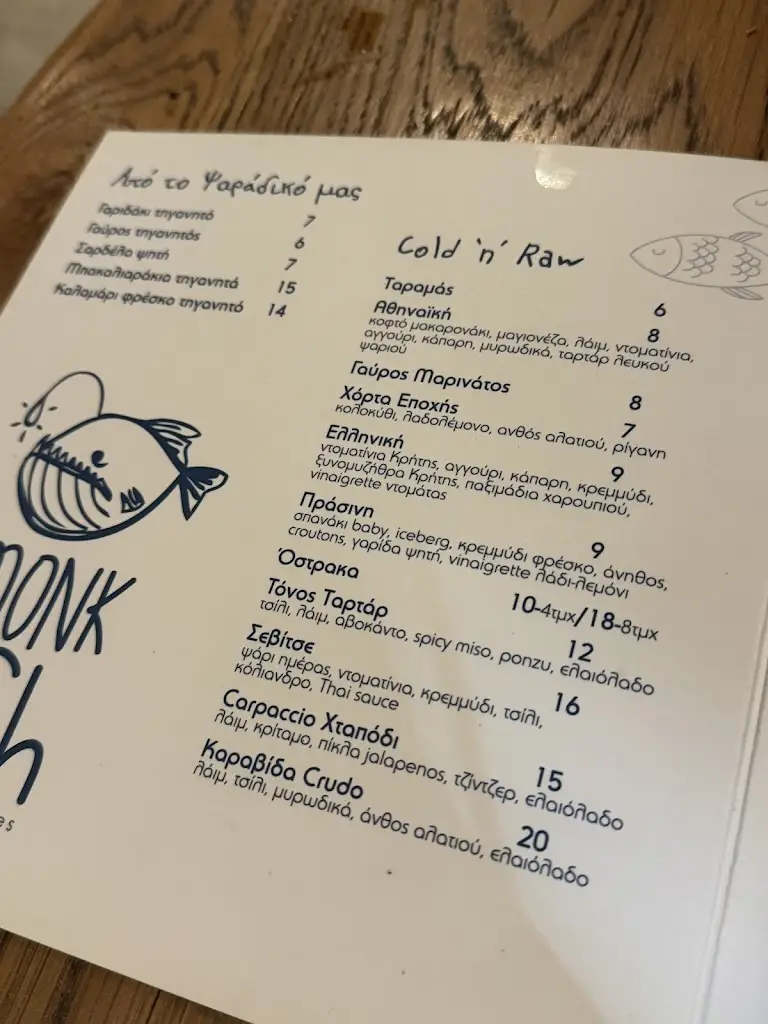 Από το Ψαράδικό μας
Γαριδάκι τηγανητό 7
Γαύρος τηγανητός 6
Σαρδέλα ψητή 7
Μπακαλιαράκια τηγανητά 15
Καλαμάρι φρέσκο τηγανητό 14
Cold 'n' Raw
Ταραμάς 6
Αθηναϊκή 8
κοφτό μακαρονάκι, μαγιονέζα, λάιμ, ντοματίνια,
αγγούρι, κάπαρη, μυρωδικά, ταρτάρ λευκού
ψαριού
Γαύρος Μαρινάτος 8
Χόρτα Εποχής 7
κολοκύθι, λαδολέμονο, ανθός αλατιού, ρίγανη
Ελληνική 9
ντοματίνια Κρήτης, αγγούρι, κάπαρη, κρεμμύδι,
ξυνομυζήθρα Κρήτης, παξιμάδια χαρουπιού,
vinaigrette ντομάτας
Πράσινη 9
σπανάκι baby, iceberg, κρεμμύδι φρέσκο, άνηθος,
croutons, γαρίδα ψητή, vinaigrette λάδι-λεμόνι
Όστρακα 10-4τμχ/18-8τμχ
Τόνος Ταρτάρ 12
τσίλι, λάιμ, αβοκάντο, spicy miso, ponzu, ελαιόλαδο
Σεβίτσε 16
ψάρι ημέρας, ντοματίνια, κρεμμύδι, τσίλι,
κόλιανδρο, Thai sauce
Carpaccio Χταπόδι 15
λάιμ, κρίταμο, πίκλα jalapenos, τζίντζερ, ελαιόλαδο
Καραβίδα Crudo 20
λάιμ, τσίλι, μυρωδικά, άνθος αλατιού, ελαιόλαδο